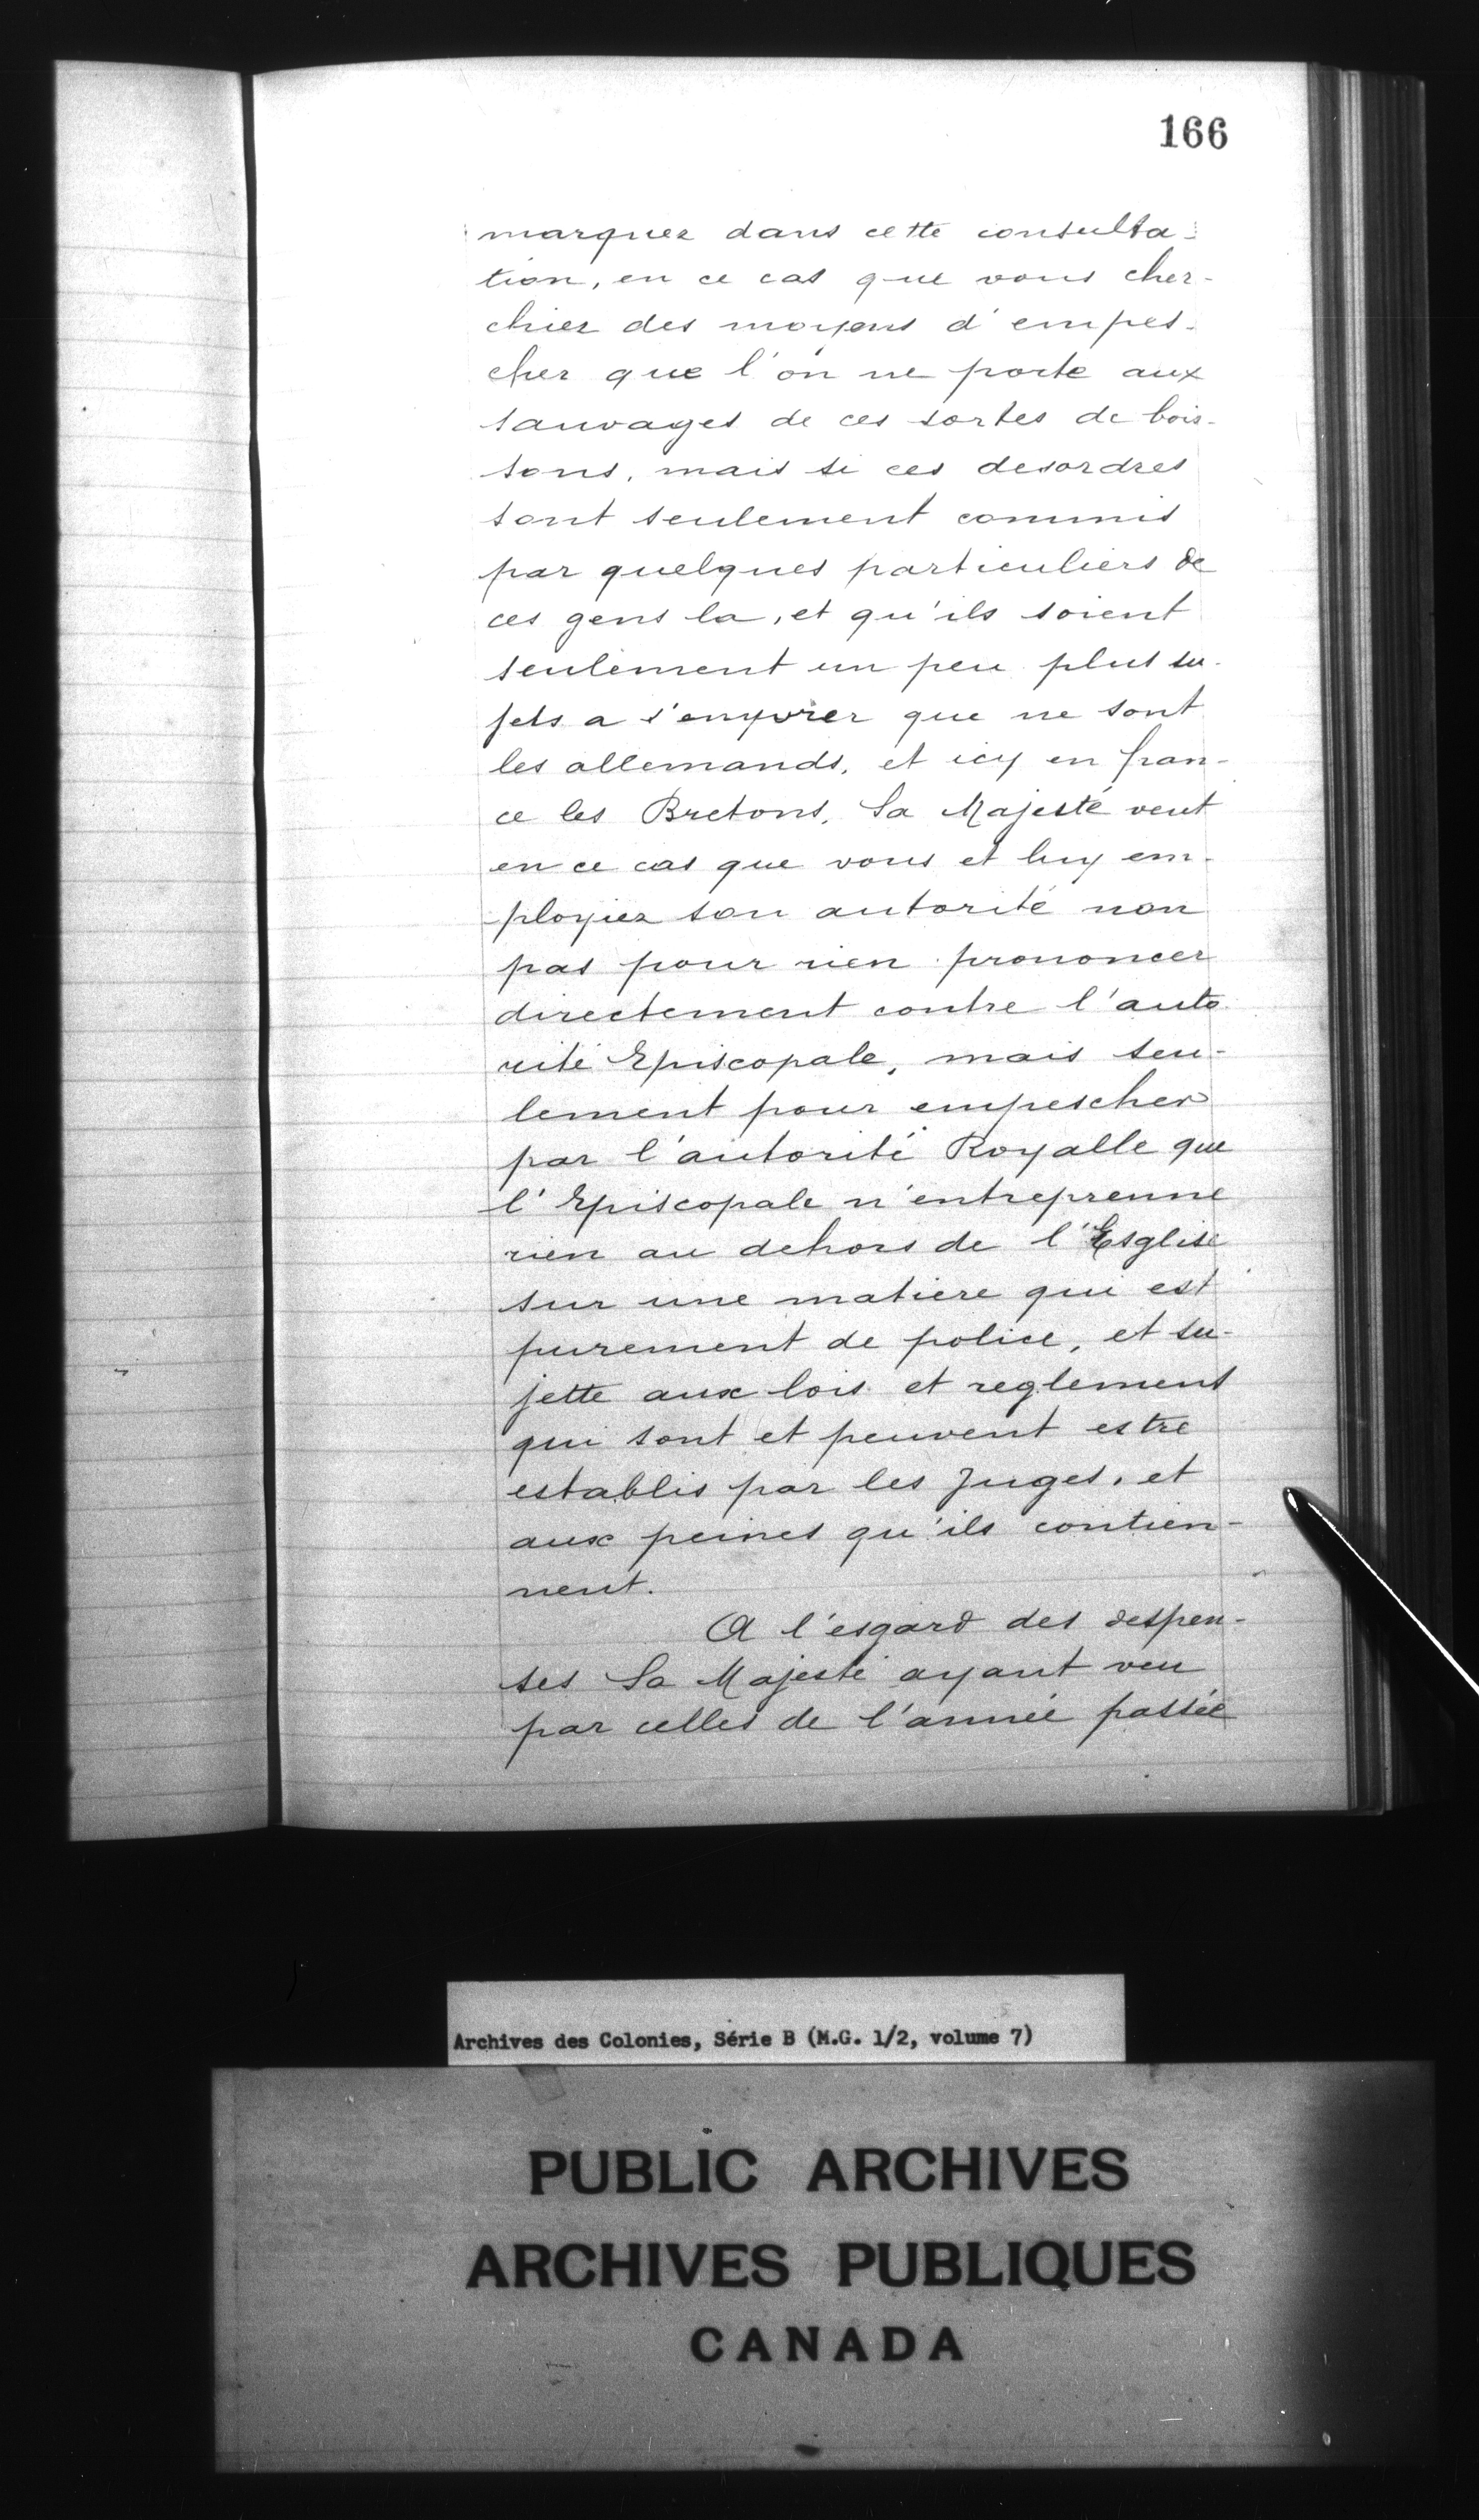 166
marquez dans cette consulta-
tion, en ce cas que vous cher-
chiez des moyens d'empes-
cher que l'on ne porte aux
sauvages de ces sortes de bois-
sons, mais si ces desordres
sont seulement commis
par quelques particuliers de
ces gens la, et qu'ils soient
seulement un peu plus su-
jets a s'enyvrer que ne sont
les allemands, et icy en fran-
ce les Bretons, Sa Majesté veut
en ce cas que vous et luy em-
ployiez son autorité non
pas pour rien prononcer
directement contre l'auto
rité Episcopale, mais seu-
lement pour empescher
par l'autorité Royalle que
l'Episcopale n'entreprenne
rien au dehors de l'Esglise
sur une matiere qui est
purement de police, et su-
jette aux lois et reglement
qui sont et peuvent estre
establis par les Juges, et
aux peines qu'ils contien-
nent.
A l'esgard des despen-
ses Sa Majesté ayant veu
par celles de l'année passée
Archives des Colonies, Série B (M.G. 1/2, volume 7)
PUBLIC ARCHIVES
ARCHIVES PUBLIQUES
CANADA